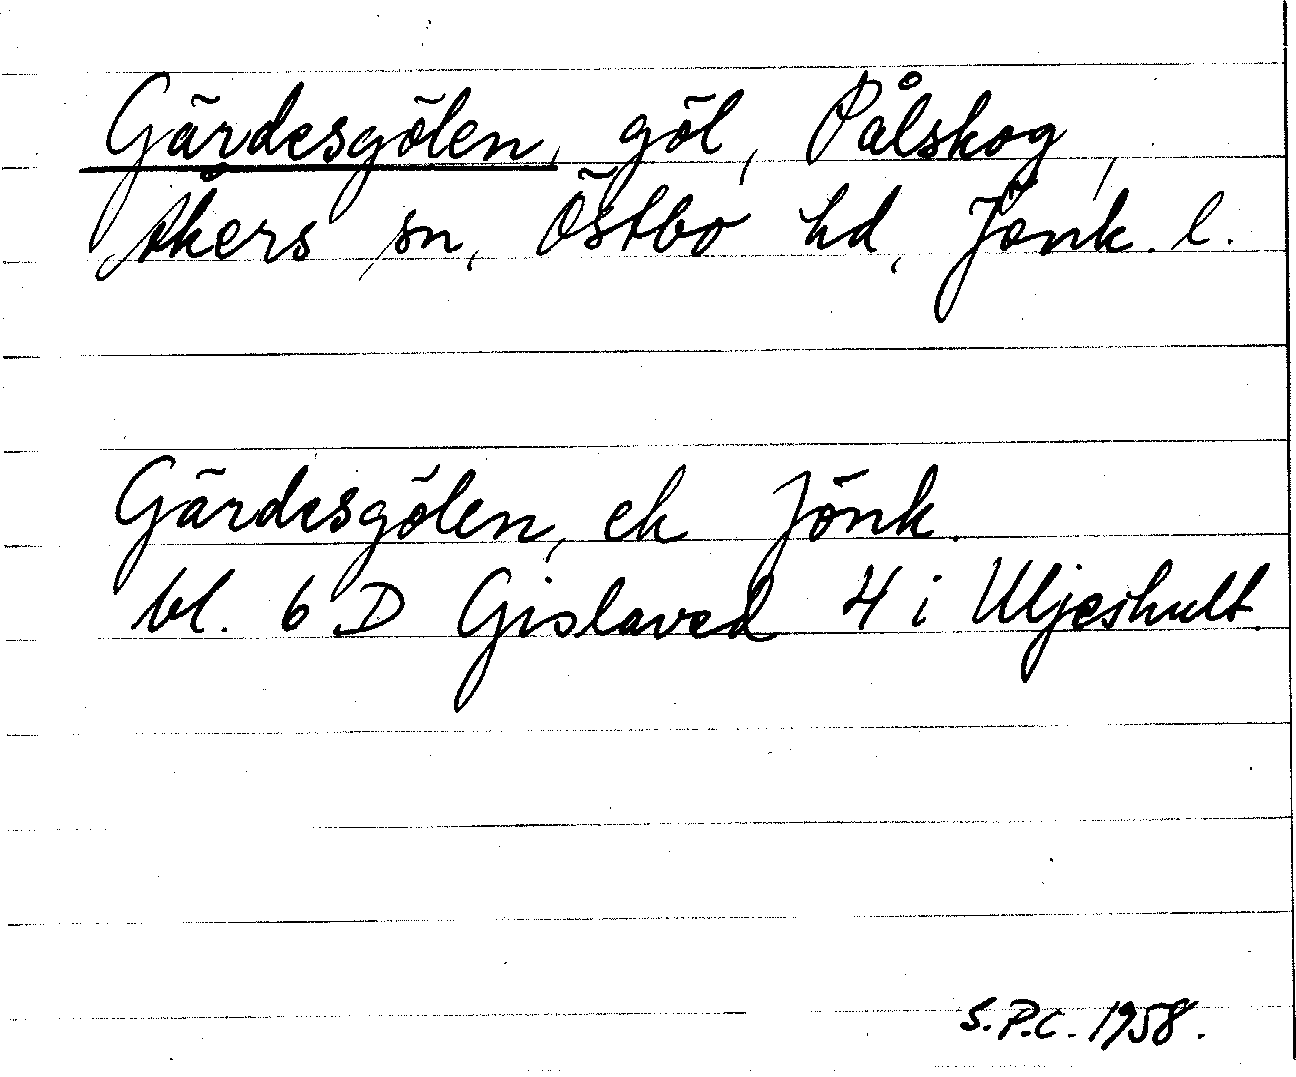 Gärdesgölen, göl, Pålskog,
Åkers sn, Östbo hd, Jönk. l.
Gärdesgölen, ek Jönk.
bl. 6 D Gislaved 4 i Uljeshult.
S.P.C. 1958.